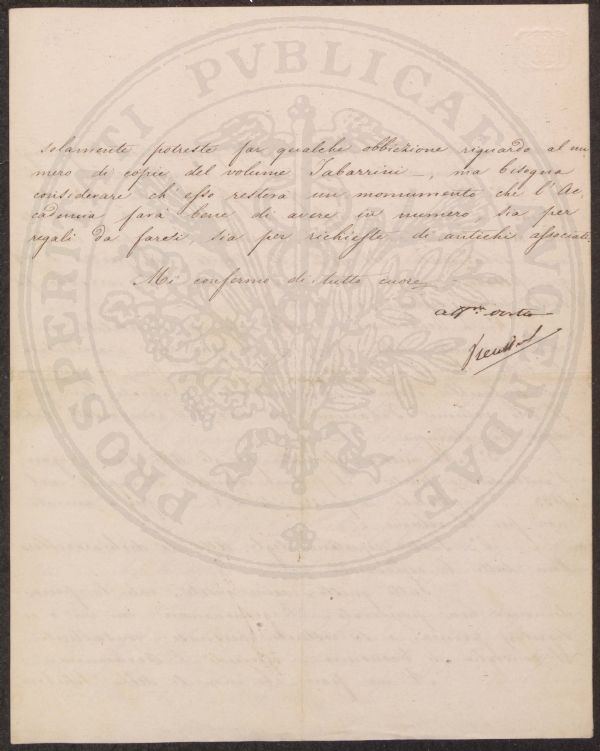 PROSPERITATI PVBLICAE AVGENDAE
solamente potreste far qualche obbiezione riguardo al nu
mero di copie del volume Tabarrini –, ma bisogna
considerare ch'esso resterà un monumento che l'Ac,
cademia farà bene di avere in numero, sia per
regali da farsi, sia per richieste di antichi associati.
Mi confermo di tutto cuore
aff.mo vostro